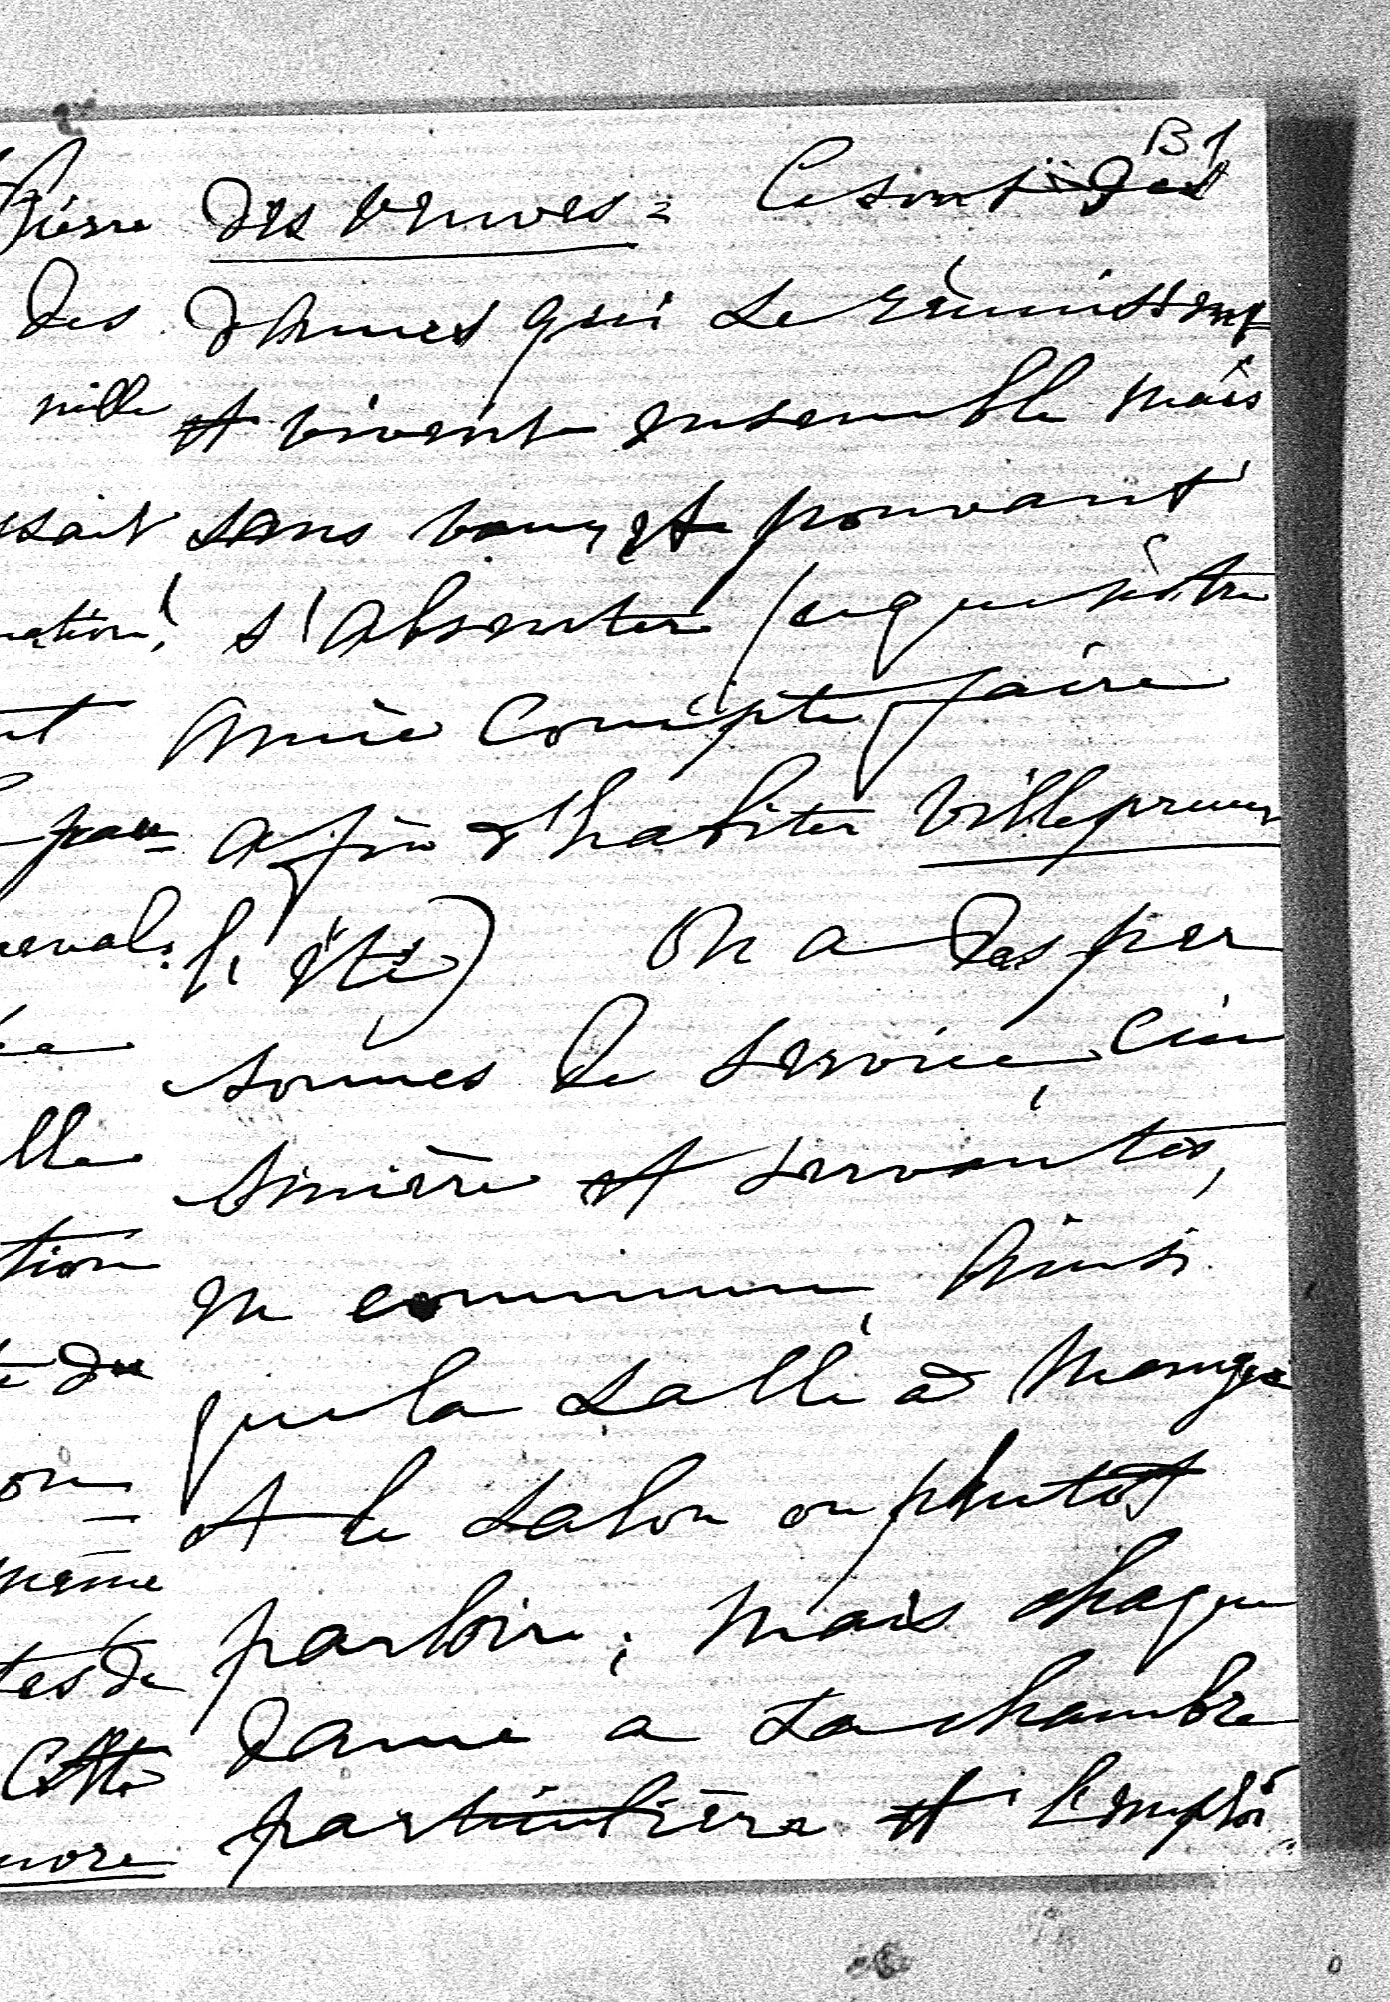 B1
Pierre
des
mille
sait
nation!
nt
pau
neval.
lle
tion
du
on
même
tes de
Cette
core
des veuves = Ce sont des
dames qui se réunissent
et vivent ensemble mais
sans vœux, et pouvant
s'absenter (ce que notre
amie compte faire
afin d'habiter Villepreux
l'été) On a des per
sonnes de service, Cui
sinière et servantes,
en commun, Ainsi
que la salle à manger
et le salon ou plutôt
parloir; mais chaque
dame a sa chambre
particulière et l'emploi